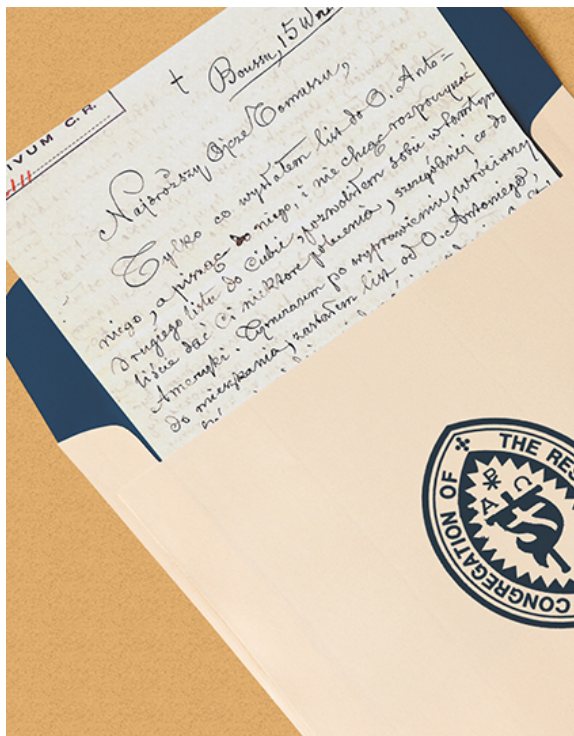 IVUM C. R.
† Boussu, 15 Wrz
Najdroższy Ojcze Tomaszu,
Tylko co wysłałem list do O. Anto=
niego, a pisząc do niego, i nie chcąc rozpoczynać
drugiego listu do Ciebie, pozwoliłem sobie w tamtym
liście dać Ci niektóre polecenia, szczególniej co do
Ameryki. Tymczasem po wyprawieniu, wróciwszy
do mieszkania, zastałem list od O. Antoniego,
CONGREGATION OF THE RES